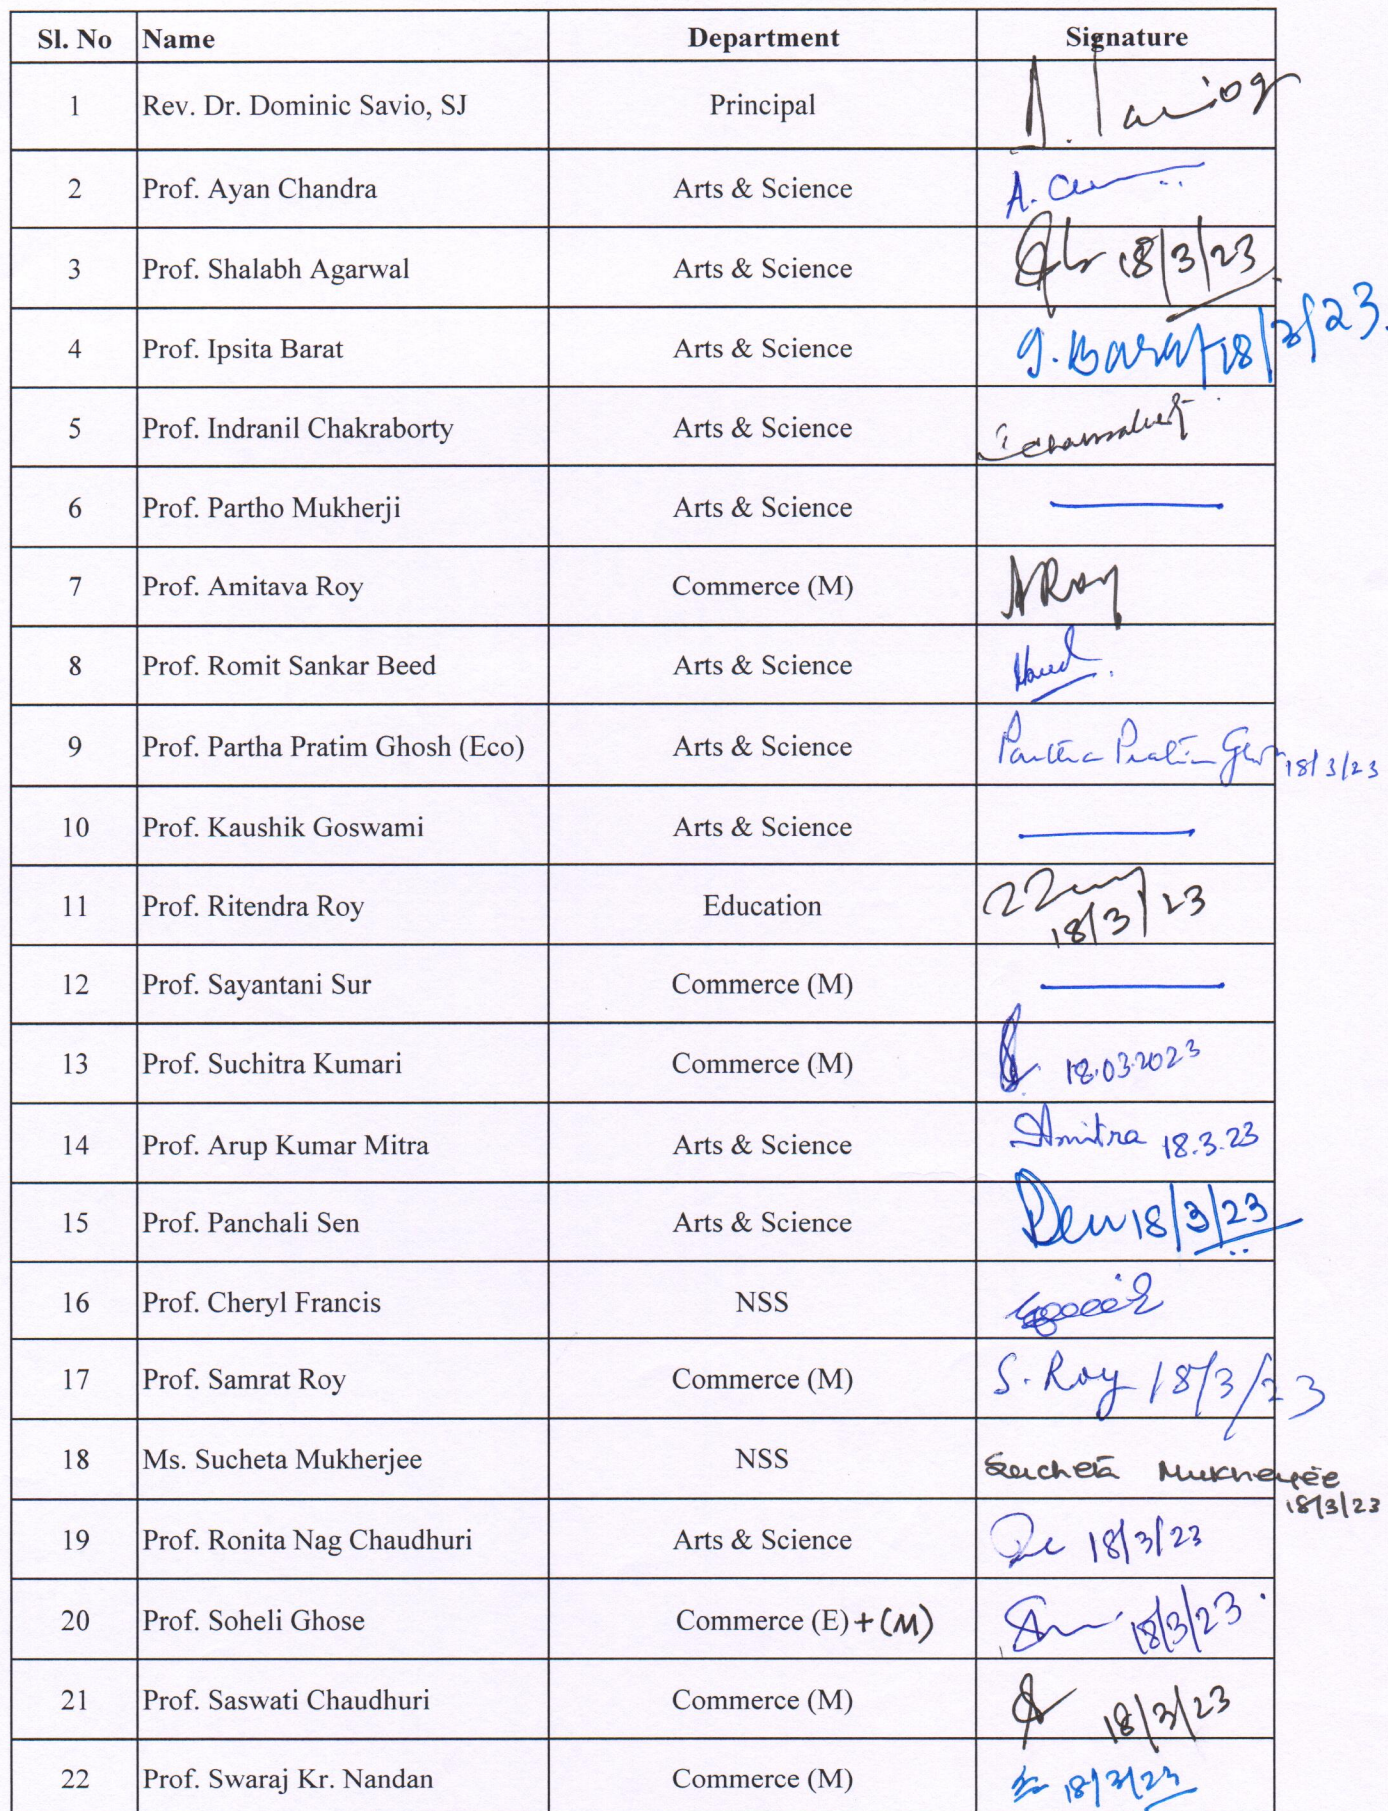 Sl. No Name Department Signature
1 Rev. Dr. Dominic Savio, SJ Principal
2 Prof. Ayan Chandra Arts & Science
3 Prof. Shalabh Agarwal Arts & Science 18/3/23
4 Prof. Ipsita Barat Arts & Science I. Barat 18/3/23.
5 Prof. Indranil Chakraborty Arts & Science
6 Prof. Partho Mukherji Arts & Science
7 Prof. Amitava Roy Commerce (M) ARoy
8 Prof. Romit Sankar Beed Arts & Science
9 Prof. Partha Pratim Ghosh (Eco) Arts & Science Partha Pratim Ghosh 18/3/23
10 Prof. Kaushik Goswami Arts & Science
11 Prof. Ritendra Roy Education
18/3/23
12 Prof. Sayantani Sur Commerce (M)
13 Prof. Suchitra Kumari Commerce (M) 18.03.2023
14 Prof. Arup Kumar Mitra Arts & Science AMitra 18.3.23
15 Prof. Panchali Sen Arts & Science PSen 18/3/23
16 Prof. Cheryl Francis NSS
17 Prof. Samrat Roy Commerce (M) S. Roy 18/3/23
18 Ms. Sucheta Mukherjee NSS Sucheta Mukherjee
18/3/23
19 Prof. Ronita Nag Chaudhuri Arts & Science 18/3/23
20 Prof. Soheli Ghose Commerce (E) + (M) 18/3/23
21 Prof. Saswati Chaudhuri Commerce (M) 18/3/23
22 Prof. Swaraj Kr. Nandan Commerce (M) 18/3/23